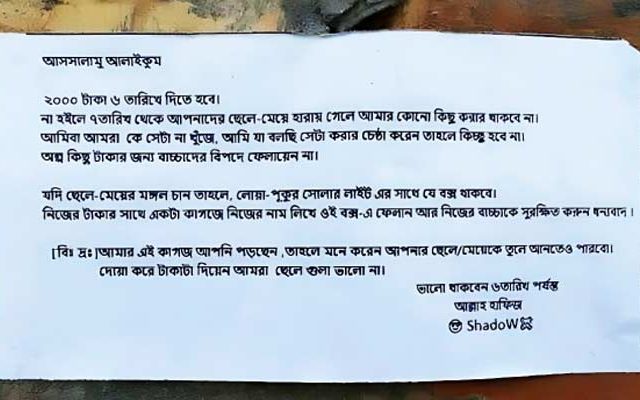 আসসালামু আলাইকুম
২০০০ টাকা ৬ তারিখে দিতে হবে।
না হইলে ৭তারিখ থেকে আপনাদের ছেলে-মেয়ে হারায় গেলে আমার কোনো কিছু করার থাকবে না।
আমিবা আমরা কে সেটা না খুঁজে, আমি যা বলছি সেটা করার চেষ্ঠা করেন তাহলে কিচ্ছু হবে না।
অল্প কিছু টাকার জন্য বাচ্চাদের বিপদে ফেলায়েন না।
যদি ছেলে-মেয়ের মঙ্গল চান তাহলে, লোয়া-পুকুর সোলার লাইট এর সাথে যে বক্স থাকবে।
নিজের টাকার সাথে একটা কাগজে নিজের নাম লিখে ওই বক্স-এ ফেলান আর নিজের বাচ্চাকে সুরক্ষিত করুন ধন্যবাদ।
[বিঃ দ্রঃ]আমার এই কাগজ আপনি পড়ছেন ,তাহলে মনে করেন আপনার ছেলে/মেয়েকে তুলে আনতেও পারবো।
দোয়া করে টাকাটা দিয়েন আমরা ছেলে গুলা ভালো না।
ভালো থাকবেন ৬তারিখ পর্যন্ত
আল্লাহ হাফিজ
😎 ShadoW☠